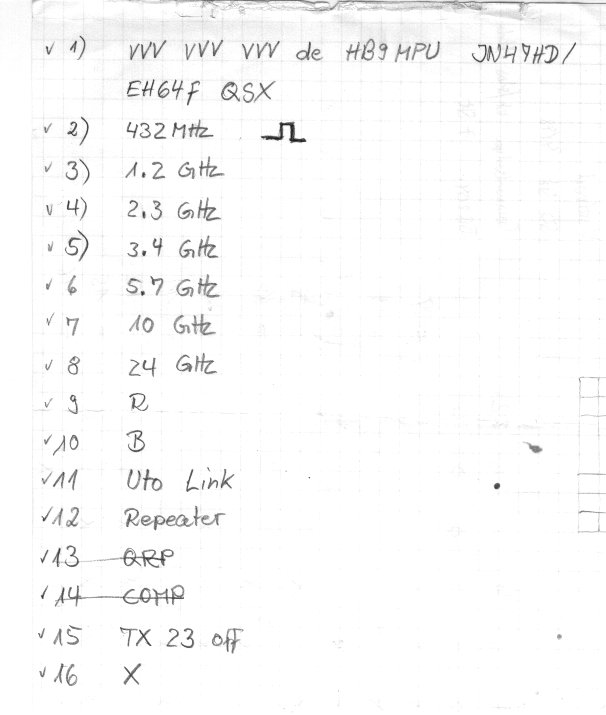 ✓ 1) VVV VVV VVV de HB9MPU JN47HD/
EH64F QSX
✓ 2) 432 MHz
✓ 3) 1.2 GHz
✓ 4) 2.3 GHz
✓ 5) 3.4 GHz
✓ 6 5.7 GHz
✓ 7 10 GHz
✓ 8 24 GHz
✓ 9 R
✓ 10 B
✓ 11 Uto Link
✓ 12 Repeater
✓ 13 QRP
✓ 14 COMP
✓ 15 TX 23 off
✓ 16 X